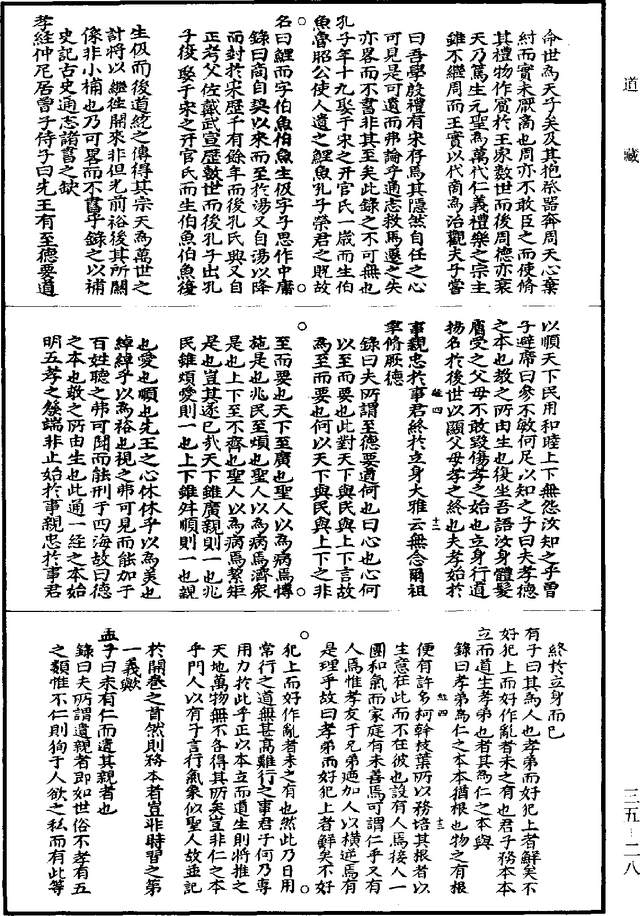 道藏
命世為天子矣及其抱祭器奔周天心棄
紂而實未厭商也周亦不敢臣之而使脩
其禮物作賓於王家數世而後周德亦衰
天乃篤生元聖為萬代仁義禮樂之宗主
雖不繼周而王實以代商為治觀夫子嘗
曰吾學殷禮有宋存焉其隱然自任之心
可見是可遺而弗論乎通志救馬遷之失
亦畧而不書非其至矣此錄之不可無也
孔子年十九娶于宋之幵官氏一歲而生伯
魚魯昭公使人遺之鯉魚孔子榮君之貺故
名曰鯉而字伯魚伯魚生伋字子思作中庸
錄曰商自契以來而至於湯又自湯以降
而封於宋歷千有餘年而後孔氏興又自
正考父佐戴武宣歷數世而後孔子出孔
子復娶于宋之幵官氏而生伯魚伯魚後
生伋而後道統之傳得其宗天為萬世之
計將以繼往開來非但光前裕後其所關
係非小補也乃可畧而不書乎錄之以補
史記古史通志諸書之缺
孝經仲尼居曾子侍子曰先王有至德要道
以順天下民用和睦上下無怨汝知之乎曾
子避席曰參不敏何足以知之子曰夫孝德
之本也教之所由生也復坐吾語汝身體髮
膚受之父母不敢毀傷孝之始也立身行道
揚名於後世以顯父母孝之終也夫孝始於
事親忠於事君終於立身大雅云無念爾祖
聿脩厥德
錄曰夫所謂至德要道何也曰心也心何
以至而要也此對天下與民與上下言故
為至而要也何以天下與民與上下之非
至而要也天下至廣也聖人以為病焉博
施是也兆民至煩也聖人以為病焉濟衆
是也上下至不齊也聖人以為病焉絜矩
是也豈其遂已哉天下雖廣親則一也兆
民雖煩愛則一也上下雖舛順則一也親
也愛也順也先王之心休休乎以為美也
綽綽乎以為裕也視之弗可見而能加于
百姓聽之弗可聞而能刑于四海故曰德
之本也教之所由生也此通一經之本始
明五孝之發端非止始於事親忠於事君
終於立身而已
有子曰其為人也孝弟而好犯上者鮮矣不
好犯上而好作亂者未之有也君子務本本
立而道生孝弟也者其為仁之本與
錄曰孝弟為仁之本本猶根也物之有根
便有許多柯幹枝葉所以務培其根者以
生意在此而不在彼也設有人焉接人一
團和氣而家庭有未善焉可謂仁乎又有
人焉惟孝友于兄弟廼加人以橫逆焉有
是理乎故曰孝弟而好犯上者鮮矣不好
犯上而好作亂者未之有也然此乃日用
常行之道無甚高難行之事君子何乃專
用力於此乎正以本立而道生則將推之
天地萬物無不各得其所矣豈非仁之本
乎門人以有子言行氣象似聖人故並記
於開卷之首然則務本者豈非時習之第
一義歟
孟子曰未有仁而遺其親者也
錄曰夫所謂遺親者即如世俗不孝有五
之類惟不仁則狥于人欲之私而有此等
三五－二八